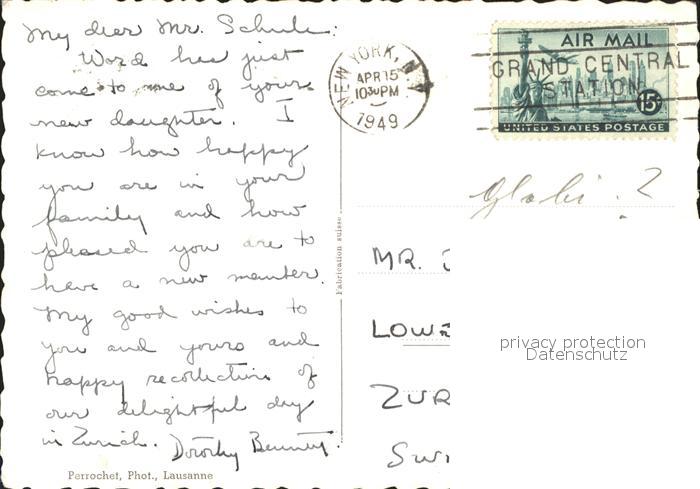 My dear Mr. Schule:
Word has just
come to me of your
new daughter. I
know how happy
you are in your
family and how
pleased you are to
have a new member.
My good wishes to
you and yours and
happy recollections of
our delightful day
in Zurich. Dorothy
Perrochet, Phot., Lausanne
Fabrication suisse
NEW YORK, N.Y.
APR 15
1030 PM
1949
AIR MAIL
GRAND CENTRAL
STATION
15¢
UNITED STATES POSTAGE
?
MR. J
LOWE
ZUR
SWI
privacy protection
Datenschutz